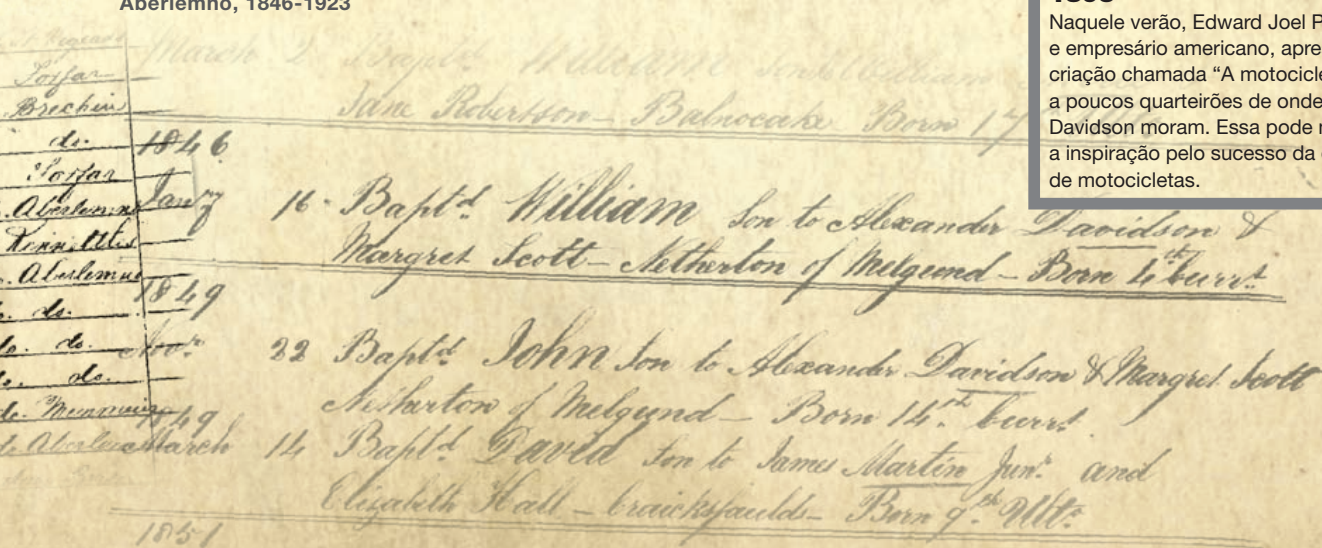 Aberlemno, 1846-1923
Naquele verão, Edward Joel P
e empresário americano, apre
criação chamada “A motocicle
a poucos quarteirões de onde
Davidson moram. Essa pode
a inspiração pelo sucesso da
de motocicletas.
Forfar
Brechin
do.
Forfar
Aberlemno
Aberlemno
do. do.
do. do.
do. do.
March 2 Bapt.d William Son to William
Jane Robertson – Balnacake Born 17 Ult.o
1846
Jany 16 - Bapt.d William Son to Alexander Davidson &
Margret Scott – Netherton of Melgund – Born 4th Currt.
1849
Novr. 22 Bapt.d John Son to Alexander Davidson & Margret Scott
Netherton of Melgund – Born 14th Currt.
49
March 14 Bapt.d David Son to James Martin Junr. and
Elizabeth Hall – Born 9th Ulto.
1851